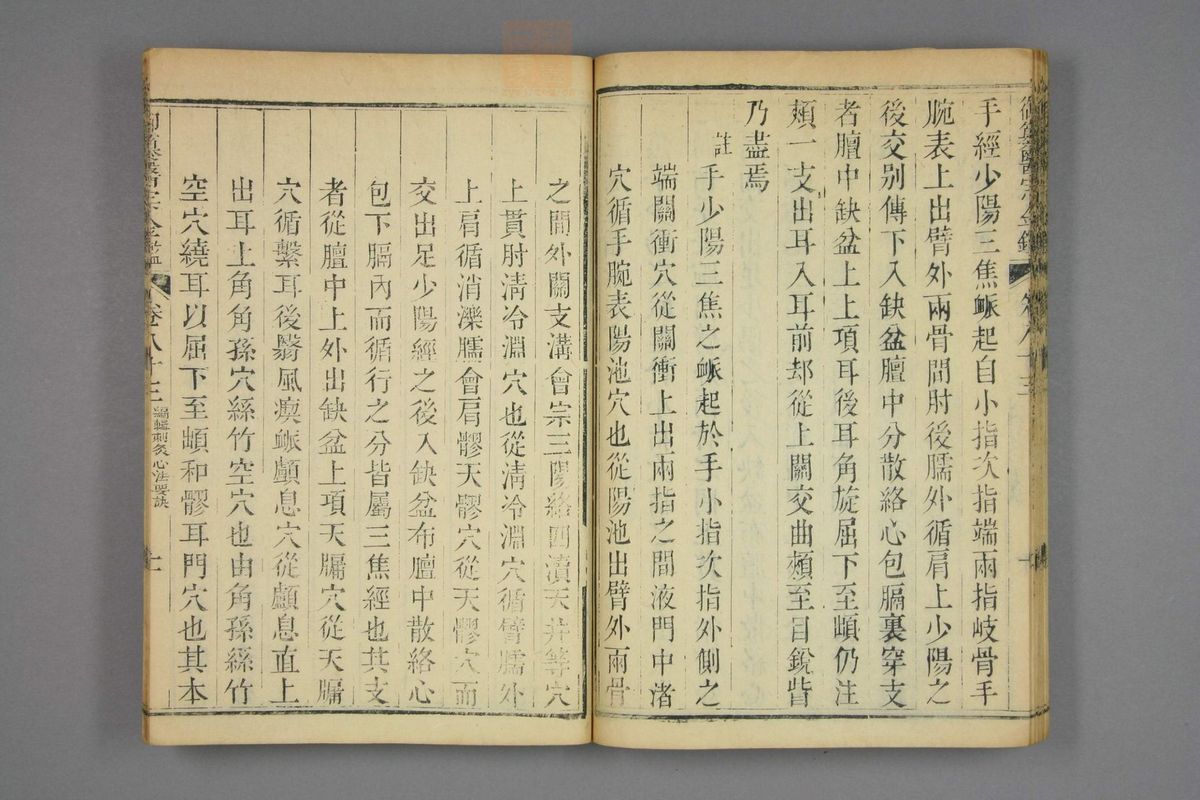 御纂醫宗金鑑 卷八十三
手經少陽三焦䘑起自小指次指端兩指岐骨手
腕表上出臂外兩骨間肘後臑外循肩上少陽之
後交别傳下入缺盆膻中分散絡心包膈裏穿支
者膻中缺盆上上項耳後耳角旋屈下至䪼仍注
頰一支出耳入耳前却從上關交曲頰至目銳眥
乃盡焉
註手少陽三焦之䘑起於手小指次指外側之
端關衝穴從關衝上出兩指之間液門中渚
穴循手腕表陽池穴也從陽池出臂外兩骨
之間外關支溝會宗三陽絡四瀆天井等穴
上貫肘淸冷淵穴也從淸冷淵穴循臂臑外
上肩循消濼臑會肩髎天髎穴從天髎穴而
交出足少陽經之後入缺盆布膻中散絡心
包下膈內而循行之分皆屬三焦經也其支
者從膻中上外出缺盆上項天牖穴從天牖
穴循繫耳後翳風瘈䘑顱息穴從顱息直上
出耳上角角孫穴絲竹空穴也由角孫絲竹
空穴繞耳以屈下至䪼和髎耳門穴也其本
卷八十三 編輯刺灸心法要訣